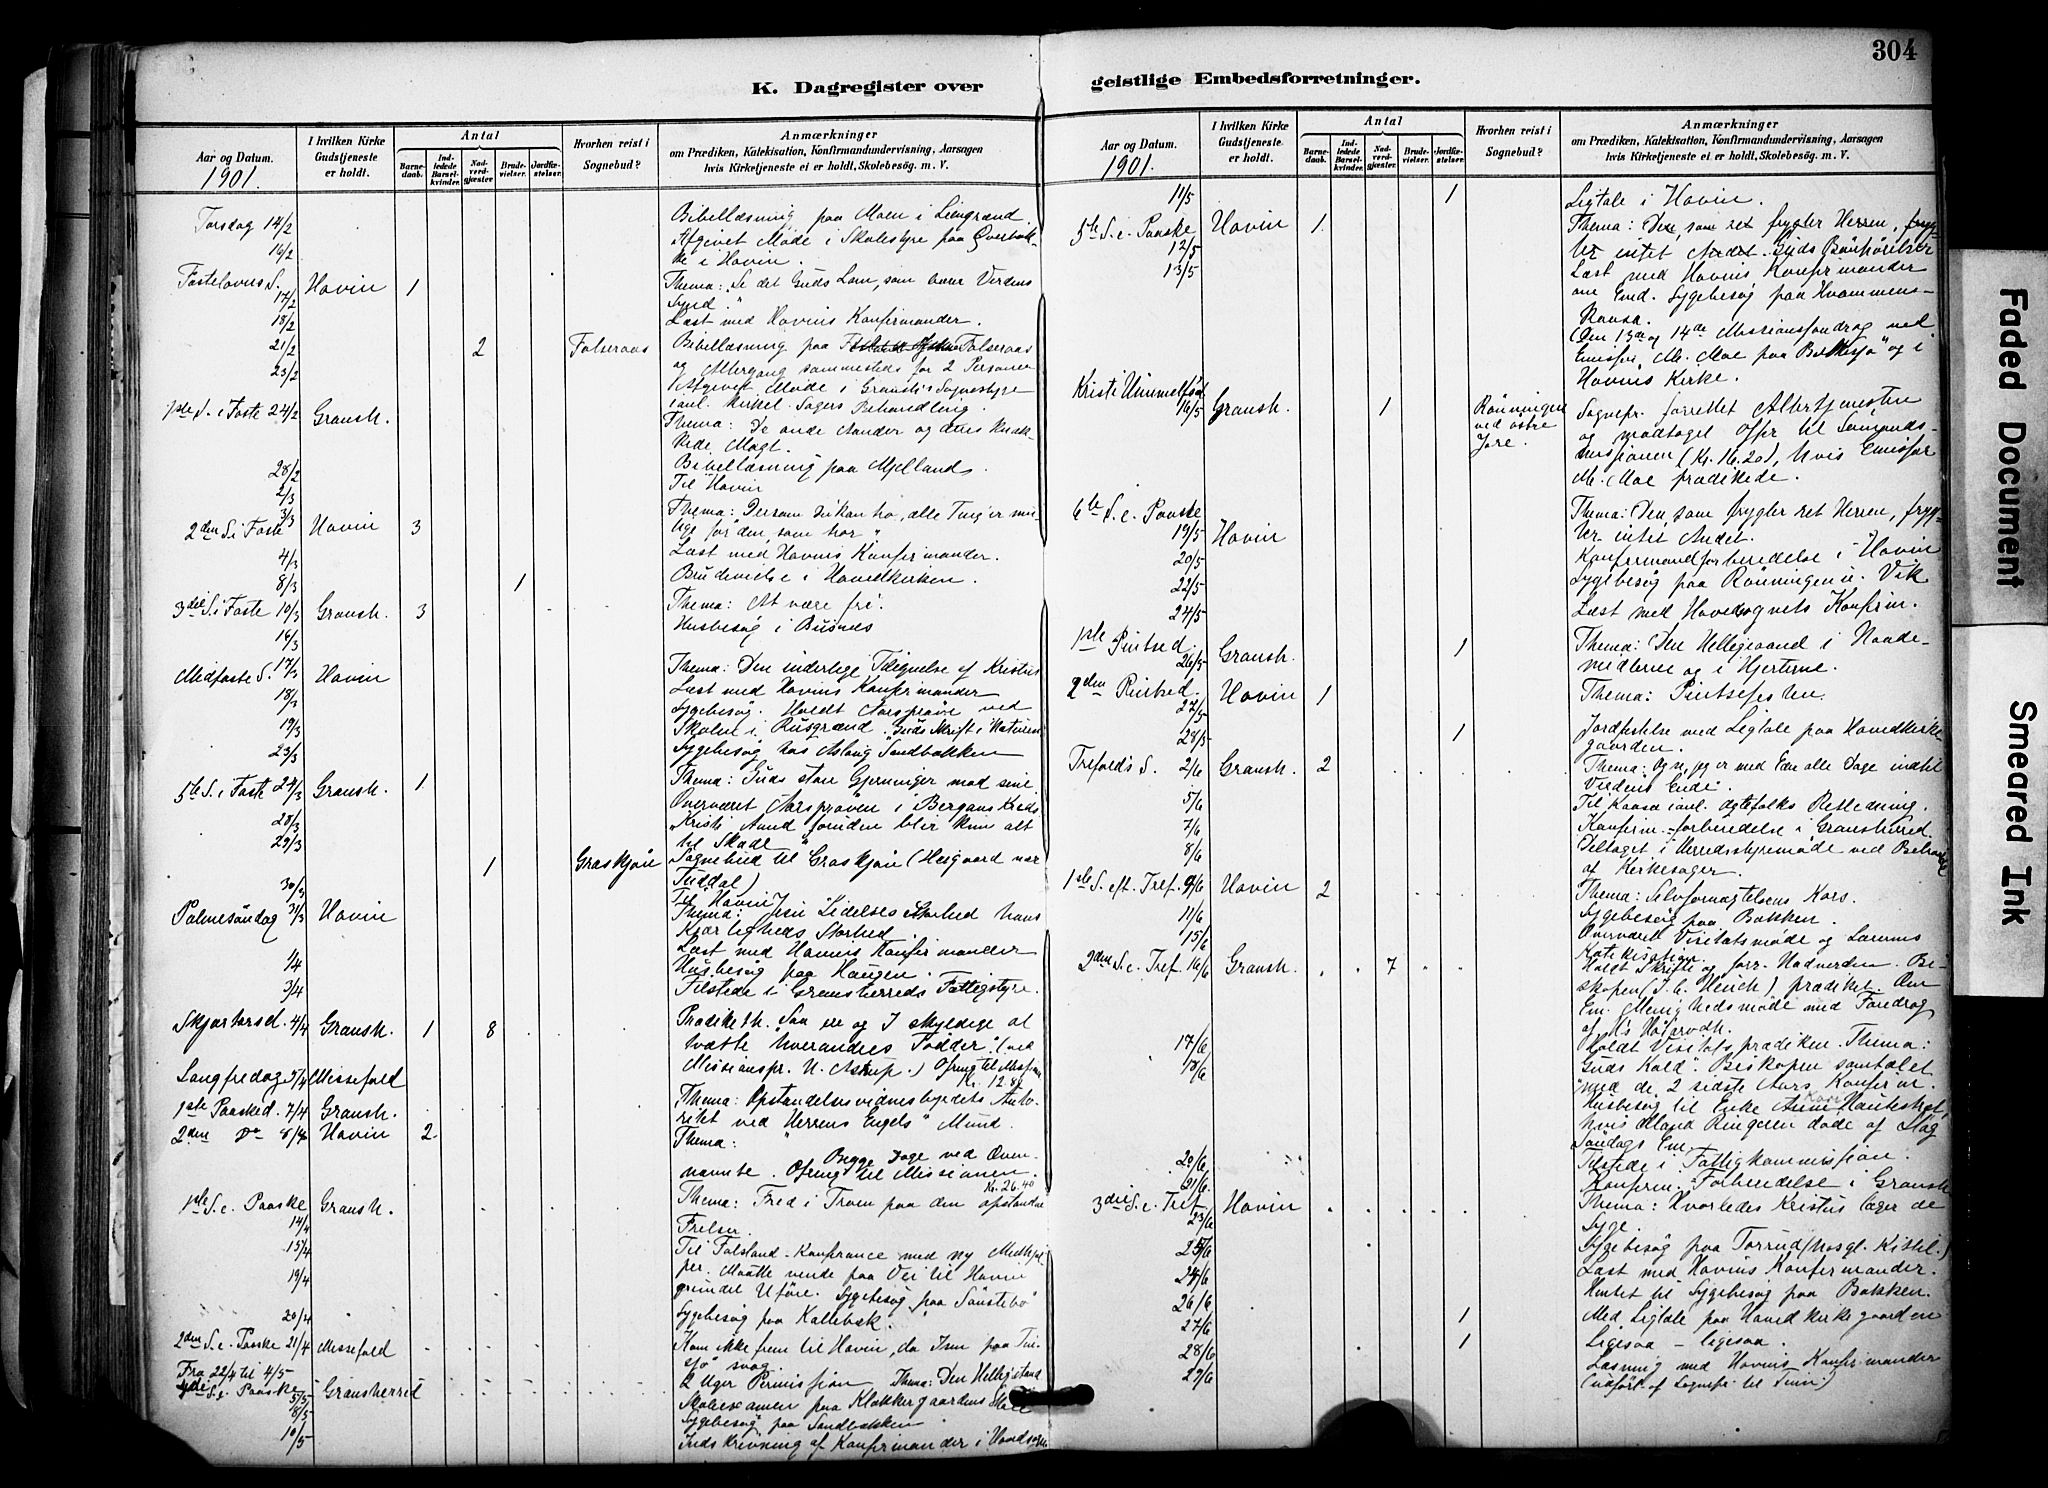 304
K. Dagregister over
geistlige Embedsforretninger.
Aar og Datum.
1901.
I hvilken Kirke
Gudstjeneste
er holdt.
Antal
Barne-
daab.
Ind-
ledede
Barsel-
kvinder.
Nad-
verd-
gjæster
Brude-
vielser.
Jordfæ-
stelser.
Hvorhen reist i
Sognebud?
Anmærkninger
om Prædiken, Katekisation, Konfirmandundervisning, Aarsagen
hvis Kirketjeneste ei er holdt, Skolebesøg. m. V.
Torsdag 14/2 Bibellæsning paa Moen i Liengrænd.
16/2 Afgivet Møde i Skolestyre paa Overbak-
ke i Hovin.
Fastelavns S. 17/2 Hovin 1 Thema: Se det Guds Lam, som bærer Verdens
Synd."
18/2 Læst med Hovins Konfirmander.
21/2 2 Folseraas Bibellæsning paa Folseraas
og Altergang sammesteds for 2 Personer
23/2 Afgivet Møde i Gransh's Sognestyre
i anl. Kirkel. Sagers Behandling.
1ste S. i Faste 24/2 Gransh. Thema: De onde Aander og deres knæk-
kede Magt.
28/2 Bibellæsning paa Mjelland.
2/3 Til Hovin
2den S. i Faste 3/3 Hovin 3 Thema: Dersom du kan tro, alle Ting er mu-
lige for den, som tror"
4/3 Læst med Hovins Konfirmander.
8/3 1 Brudevielse i Hovedkirken.
3die S. i Faste 10/3 Gransh. 3 Thema: At være fri.
16/3 Husbesøg i Busnes
Midfaste S. 17/3 Hovin Thema: Den inderlige Tilegnelse af Kristus
18/3 Læst med Hovins Konfirmander
19/3 Sygebesøg. Holdt Aarsprøve ved
Skolen i Busgrænd. Guds Skrift i Naturen
23/3 Sygebesøg hos Aslaug Sandbakken
5te S. i Faste 24/3 Gransh. 1 Thema: Guds store Gjerninger mod sine.
28/3 Overværet Aarsprøven i Bergans Kreds
29/3 "Kristi Aand foruden blir kun alt
til Skade"
1 Graskjøn Sognebud til Graskjøn (Husgaard nær
Tuddal)
30/3 Til Hovin
Palmesøndag 31/3 Hovin Thema: Jesu Lidelses Storhed hans
Kjærligheds Storhed
1/4 Læst med Hovins Konfirmander
Husbesøg paa Haugen.
3/4 Tilstede i Gransherreds Fattigstyre.
Skjærtorsd. 4/4 Gransh. 1 8 Prædiketh. Saa ere og I skyldige at
tvætte hverandres Fødder" (ved
Missionspr. N. Astrup.) Ofring til Mission
Kr. 12.
Langfredag 5/4 Messefald
1ste Paasked. 7/4 Gransh. Thema: Opstandelsesvidnesbyrdets Auto-
ritet ved Herrens Engels" Mund.
2den Do 8/4 Hovin 2 Thema:
Begge Dage ved Oven-
nævnte. Ofring til Missionen.
Kr. 26.40
1ste S. e. Paaske 14/4 Gransh. Thema: Fred i Troen paa den opstandne
Frelser.
15/4 Til Folsland - Konfrance med ny Medhjæl-
per. Maatte vende paa Vei til Hovin
19/4 grundet Uføre. Sygebesøg paa Sønstebø"
20/4 Sygebesøg paa Kallebæk.
2den S. e. Paaske 21/4 Messefald Kom ikke frem til Hovin, da Isen paa Tin-
sjø" svag.
Fra 22/4 til 4/5 2 Uger Permission
4de S. e. Paaske 5/5 Gransherred Thema: Den Helligaand
8/5 Skoleexamen paa Klokkergaardens Skole
Sygebesøg paa Sandbakken
10/5 Indskrivning af Konfirmander i Hovedsogn
Aar og Datum.
1901.
I hvilken Kirke
Gudstjeneste
er holdt.
Antal
Barne-
daab.
Ind-
ledede
Barsel-
kvinder.
Nad-
verd-
gjæster
Brude-
vielser.
Jordfæ-
stelser.
Hvorhen reist i
Sognebud?
Anmærkninger
om Prædiken, Katekisation, Konfirmandundervisning, Aarsagen
hvis Kirketjeneste ei er holdt, Skolebesøg. m. V.
11/5 1 Ligtale i Hovin.
5te S. e. Paaske 12/5 Hovin 1. Thema: Den, som ret frygter Herren, fryg-
ter intet Andet. Guds Bønhørelser
13/5 Læst med Hovins Konfirmander
om Emd. Sygebesøg paa Hvammens-
Raasa.
(Den 13de og 14de Missionsforedrag ved
Emisær M. Moe paa Bolkesjø" og i
Hovins Kirke.
Kristi Himmelfartsd. 16/5 Gransh. 1 Rønningen
ved østre
Jore.
Sognepr. forrettet Altertjenesten
og modtaget Offer til Sømands-
missionen (Kr. 16.20), hvis Emisær
M. Moe prædikede.
6te S. e. Paaske 19/5 Hovin Thema: Den, som frygter ret Herren, fryg-
ter intet Andet.
20/5 Konfirmandforberedelse i Hovin
22/5 Sygebesøg paa Rønningen u. Vik
24/5 Læst med Hovedsognets Konfirm.
1ste Pintsed. 26/5 Gransh. 1 Thema: Den Helligeaand i Naade-
midlerne og i Hjerterne.
2den Pintsed. 27/5 Hovin 1 Thema: Pintsefesten.
28/5 1 Jordfæstelse med Ligtale paa Hovedkirke-
gaarden.
Trefold's S. 2/6 Gransh. 2 Thema: Og se, jeg er med Eder alle Dage indtil
Verdens Ende.
5/6 Til Kaasa i anl. Ægtefolks Retledning.
7/6 Konfirm.-forberedelse i Gransherred.
8/6 Deltaget i Herredsstyremøde ved Behandling
af Kirkesager.
1ste S. eft. Tref. 9/6 Hovin 2 Thema: Selvfornægtelsens Kors.
11/6 Sygebesøg paa Bakken.
15/6 Overværet Visitatsmøde og Lærerens
Katekisation.
2den S. e. Tref. 16/6 Gransh. 7 Holdt Skrifte og forr. Nadverden. Bi-
skopen (J. C. Heuch) prædiket. Om
Em. Menighedsmøde med Foredrag
17/6 Holdt Visitatsprædiken. Thema:
Guds Kald. Biskopen samtalet
18/6 med de 2 sidste Aars Konfirm.
Husbesøg til Enke
hvis Mand Ringeren døde af Slag
Søndags Em.
20/6 Tilstede i Fattigkommission.
21/6 Konfirm.-Forberedelse i Gransh
3die S. e. Tref. 23/6 Hovin Thema: Hvorledes Kristus læger de
Syge.
25/6 Sygebesøg paa Torrud
24/6 Læst med Hovins Konfirmander.
26/6 Hentet til Sygebesøg paa Bakken.
27/6 1 Med Ligtale paa Hovedkirkegaarden
28/6 1 Ligesaa - ligesaa.
29/6 Læsning med Hovins Konfirmander
(udført af Sognepr. til Tinn)
Faded Document
Smeared Ink